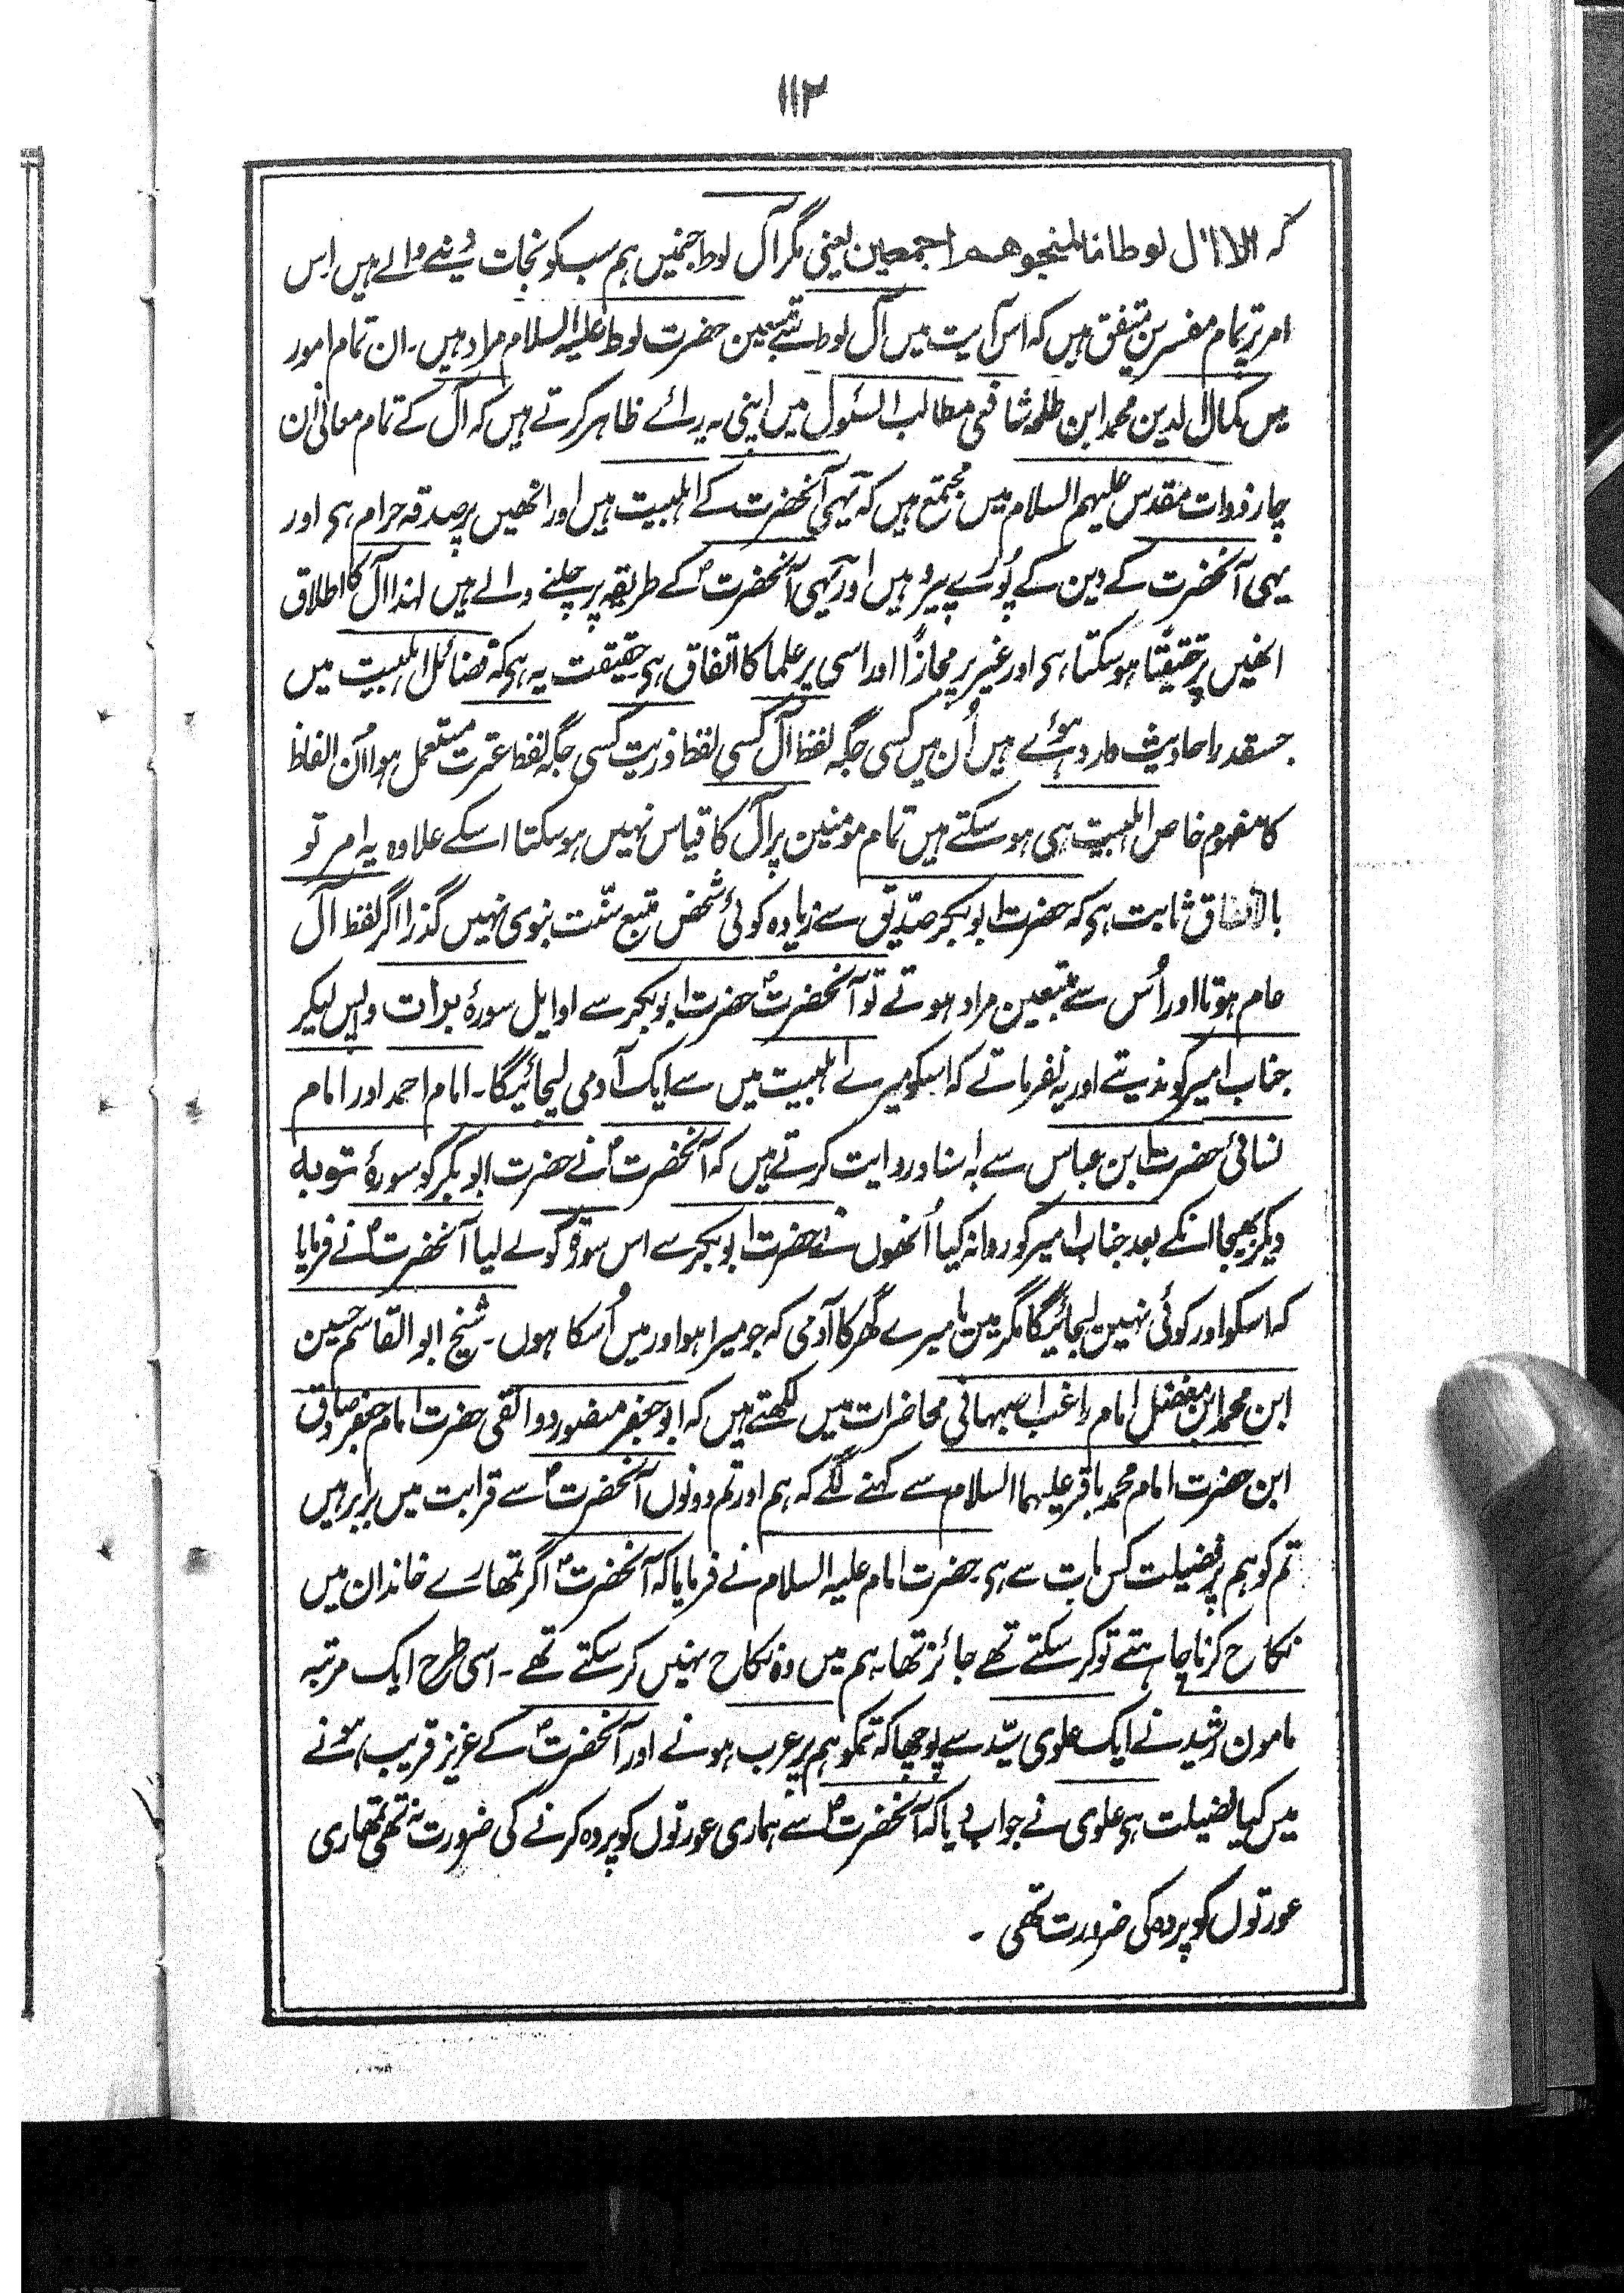 ۱۱۲
کہ الا اٰل لوط انا لمنجوھم اجمعین یعنی مگر آل لوط جنھیں ہم سب کو نجات دینے والے ہیں اس
امر پر تمام مفسرین متفق ہیں کہ اس آیت میں آل لوط سے متبعین حضرت لوط علیہ السلام مراد ہیں۔ ان تمام امور
میں کمال الدین محمد ابن طلحہ شافعی مطالب السئول میں اپنی یہ رائے ظاہر کرتے ہیں کہ آل کے تمام معانی ان
چار ذوات مقدس علیہم السلام میں مجتمع ہیں کہ یہی آنحضرت کے اہلبیت ہیں اور انھیں پر صدقہ حرام ہی اور
یہی آنحضرت کے دین کے پُورے پیرو ہیں اور یہی آنحضرتؐ کے طریقہ پر چلنے والے ہیں لہذا آل کا اطلاق
انھیں پر حقیقتًا ہو سکتا ہی اور غیر پر مجازًا اور اسی پر علما کا اتفاق ہی حقیقت یہ ہی کہ فضائل اہلبیت میں
جسقدر احادیث وارد ہوئے ہیں اُن میں کسی جگہ لفظ آل کسی لفظ ذریت کسی جگہ لفظ عترت مستعمل ہوا اُن الفاظ
کا مفہوم خاص اہلبیت ہی ہو سکتے ہیں تمام مومنین پر آل کا قیاس نہیں ہو سکتا اسکے علاوہ یہ امر تو
بالاتفاق ثابت ہی کہ حضرت ابوبکر صدّیق سے زیادہ کوئی شخص متبع سنّت نبوی نہیں گذرا اگر لفظ آل
عام ہوتا اور اُس سے متبعین مراد ہوتے تو آنحضرتؐ حضرت ابوبکر سے اوایل سورۂ برأت واپس لیکر
جناب امیر کو ندیتے اور یہ نفرماتے کہ اسکو میرے اہلبیت میں سے ایک آدمی لیجائیگا۔ امام احمد اور امام
نسائی حضرت ابن عباس سے بہ اسناد روایت کرتے ہیں کہ آنحضرتؐ نے حضرت ابوبکر کو سورۂ توبہ
دیکر بھیجا انکے بعد جناب امیر کو روانہ کیا اُنھوں نے حضرت ابوبکر سے اس سورۃ کو لے لیا آنحضرتؐ نے فرمایا
کہ اسکو اور کوئی نہیں لیجائیگا مگر میں یا میرے گھر کا آدمی کہ جو میرا ہو اور میں اُسکا ہوں۔ شیخ ابوالقاسم حسین
ابن محمد ابن مفضل امام راغب اصبہانی محاضرات میں لکھتے ہیں کہ ابو جعفر منصور دوانقی حضرت امام جعفر صادق
ابن حضرت امام محمد باقر علیہما السلام سے کہنے لگے کہ ہم اور تم دونوں آنحضرتؐ سے قرابت میں برابر ہیں
تم کو ہم پر فضیلت کس بابت سے ہی حضرت امام علیہ السلام نے فرمایا کہ آنحضرتؐ اگر تمھارے خاندان میں
نکاح کرنا چاہتے تو کر سکتے تھے جائز تھا ہم میں وہ نکاح نہیں کر سکتے تھے۔ اسی طرح ایک مرتبہ
مامون رشید نے ایک علوی سیّد سے پوچھا کہ تمکو ہم پر عرب ہونے اور آنحضرتؐ کے عزیز قریب ہونے
میں کیا فضیلت ہی علوی نے جواب دیا کہ آنحضرتؐ سے ہماری عورتوں کو پردہ کرنے کی ضرورت نہ تھی تمھاری
عورتوں کو پردہ کی ضرورت تھی ۔